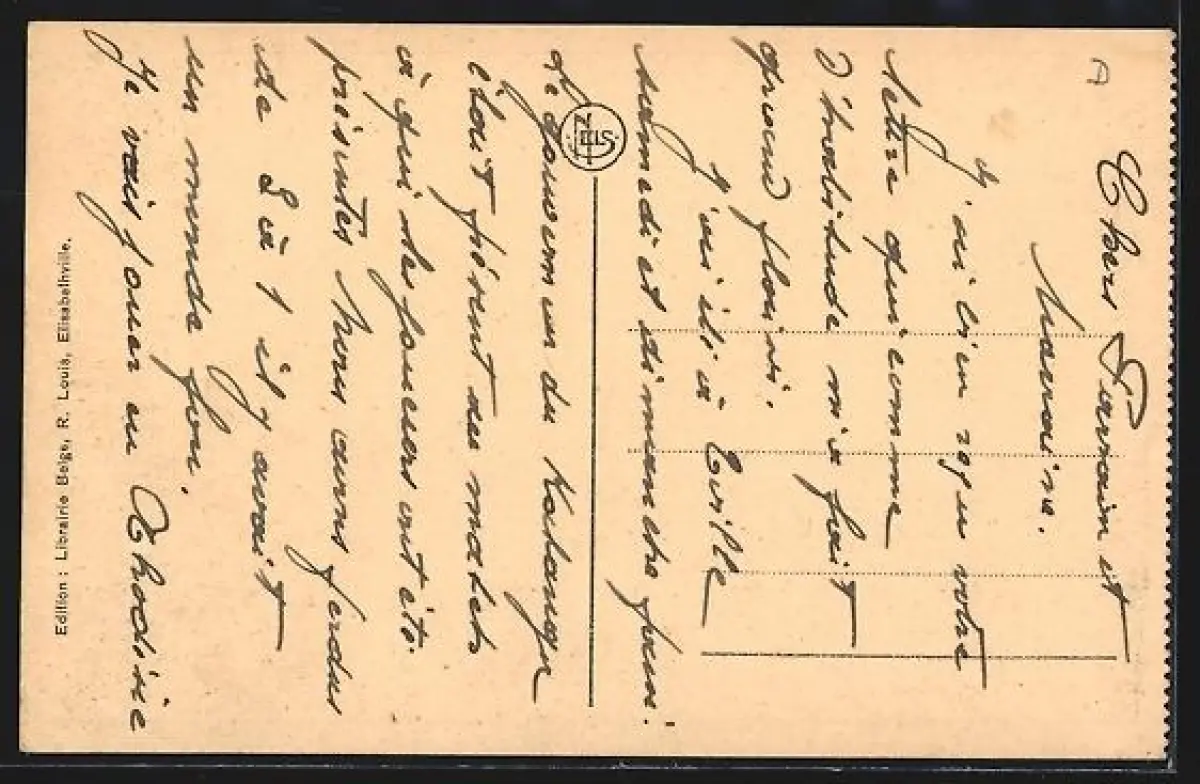 Chers Parrain et
Marraine.
J'ai bien reçu votre
lettre qui comme
d'habitude m'a fait
grand plaisir.
J'ai été à E'ville
samedi et dimanche pour
Le gouverneur du Katanga
était présent au match
à qui les joueurs ont été
présentés. Nous avons perdus
de 8 à 1 il y avait
un monde fou.
Je vais jouer en Rhodésie
A
ELIS
Edition : Librairie Belge, R. Louis, Elisabethville.